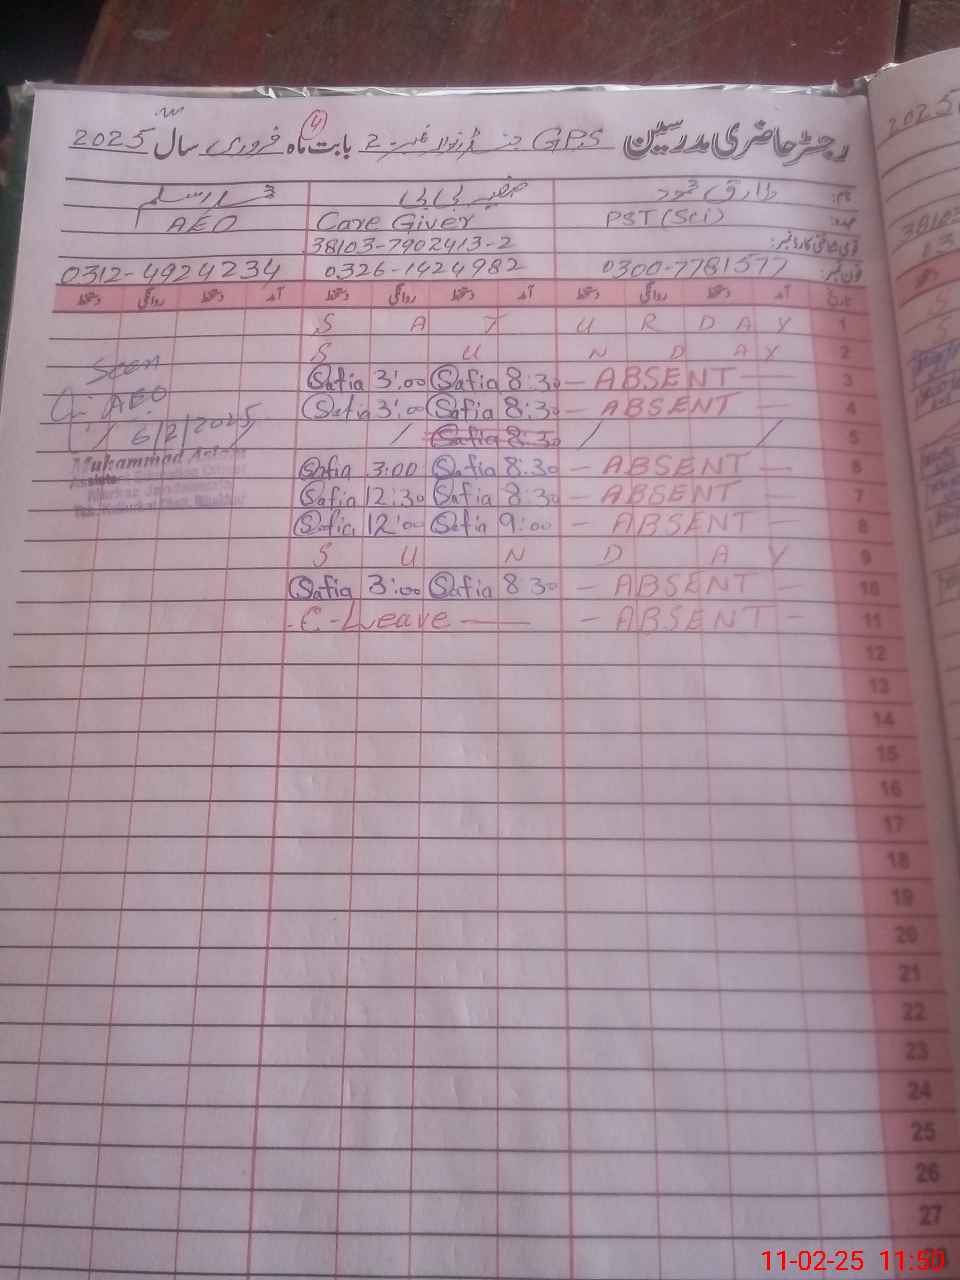 رجسٹر حاضری مدرسین GPS 2 بابت ماہ فروری سال 2025
4
نام: طارق محمود صفیہ بی بی
عہدہ: PST (Sci) Care Giver AEO
قومی شناختی کارڈ نمبر: 38103-7902413-2
فون نمبر: 0300-7781577 0326-1424982 0312-4924234
تاریخ آمد دستخط روانگی دستخط آمد دستخط روانگی دستخط آمد دستخط روانگی دستخط
S A T U R D A Y 1
S U N D A Y 2
Seen
Safia 3:00 Safia 8:30 - ABSENT - 3
AEO
Safia 3:00 Safia 8:30 - ABSENT - 4
6/2/2025
/ Safia 8:30 / / 5
Muhammad Aslam
Safia 3:00 Safia 8:30 - ABSENT - 6
Safia 12:30 Safia 8:30 - ABSENT - 7
Safia 12:00 Safia 9:00 - ABSENT - 8
S U N D A Y 9
Safia 3:00 Safia 8:30 - ABSENT - 10
- C-Leave - - ABSENT - 11
12
13
14
15
16
17
18
19
20
21
22
23
24
25
26
27
11-02-25 11:50